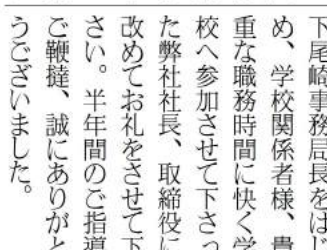 下尾崎事務局長をは
め、学校関係者様、貴
重な職務時間に快く学
校へ参加させて下さっ
た弊社社長、取締役に
改めてお礼をさせて下
さい。半年間のご指導
ご鞭撻、誠にありがと
うございました。